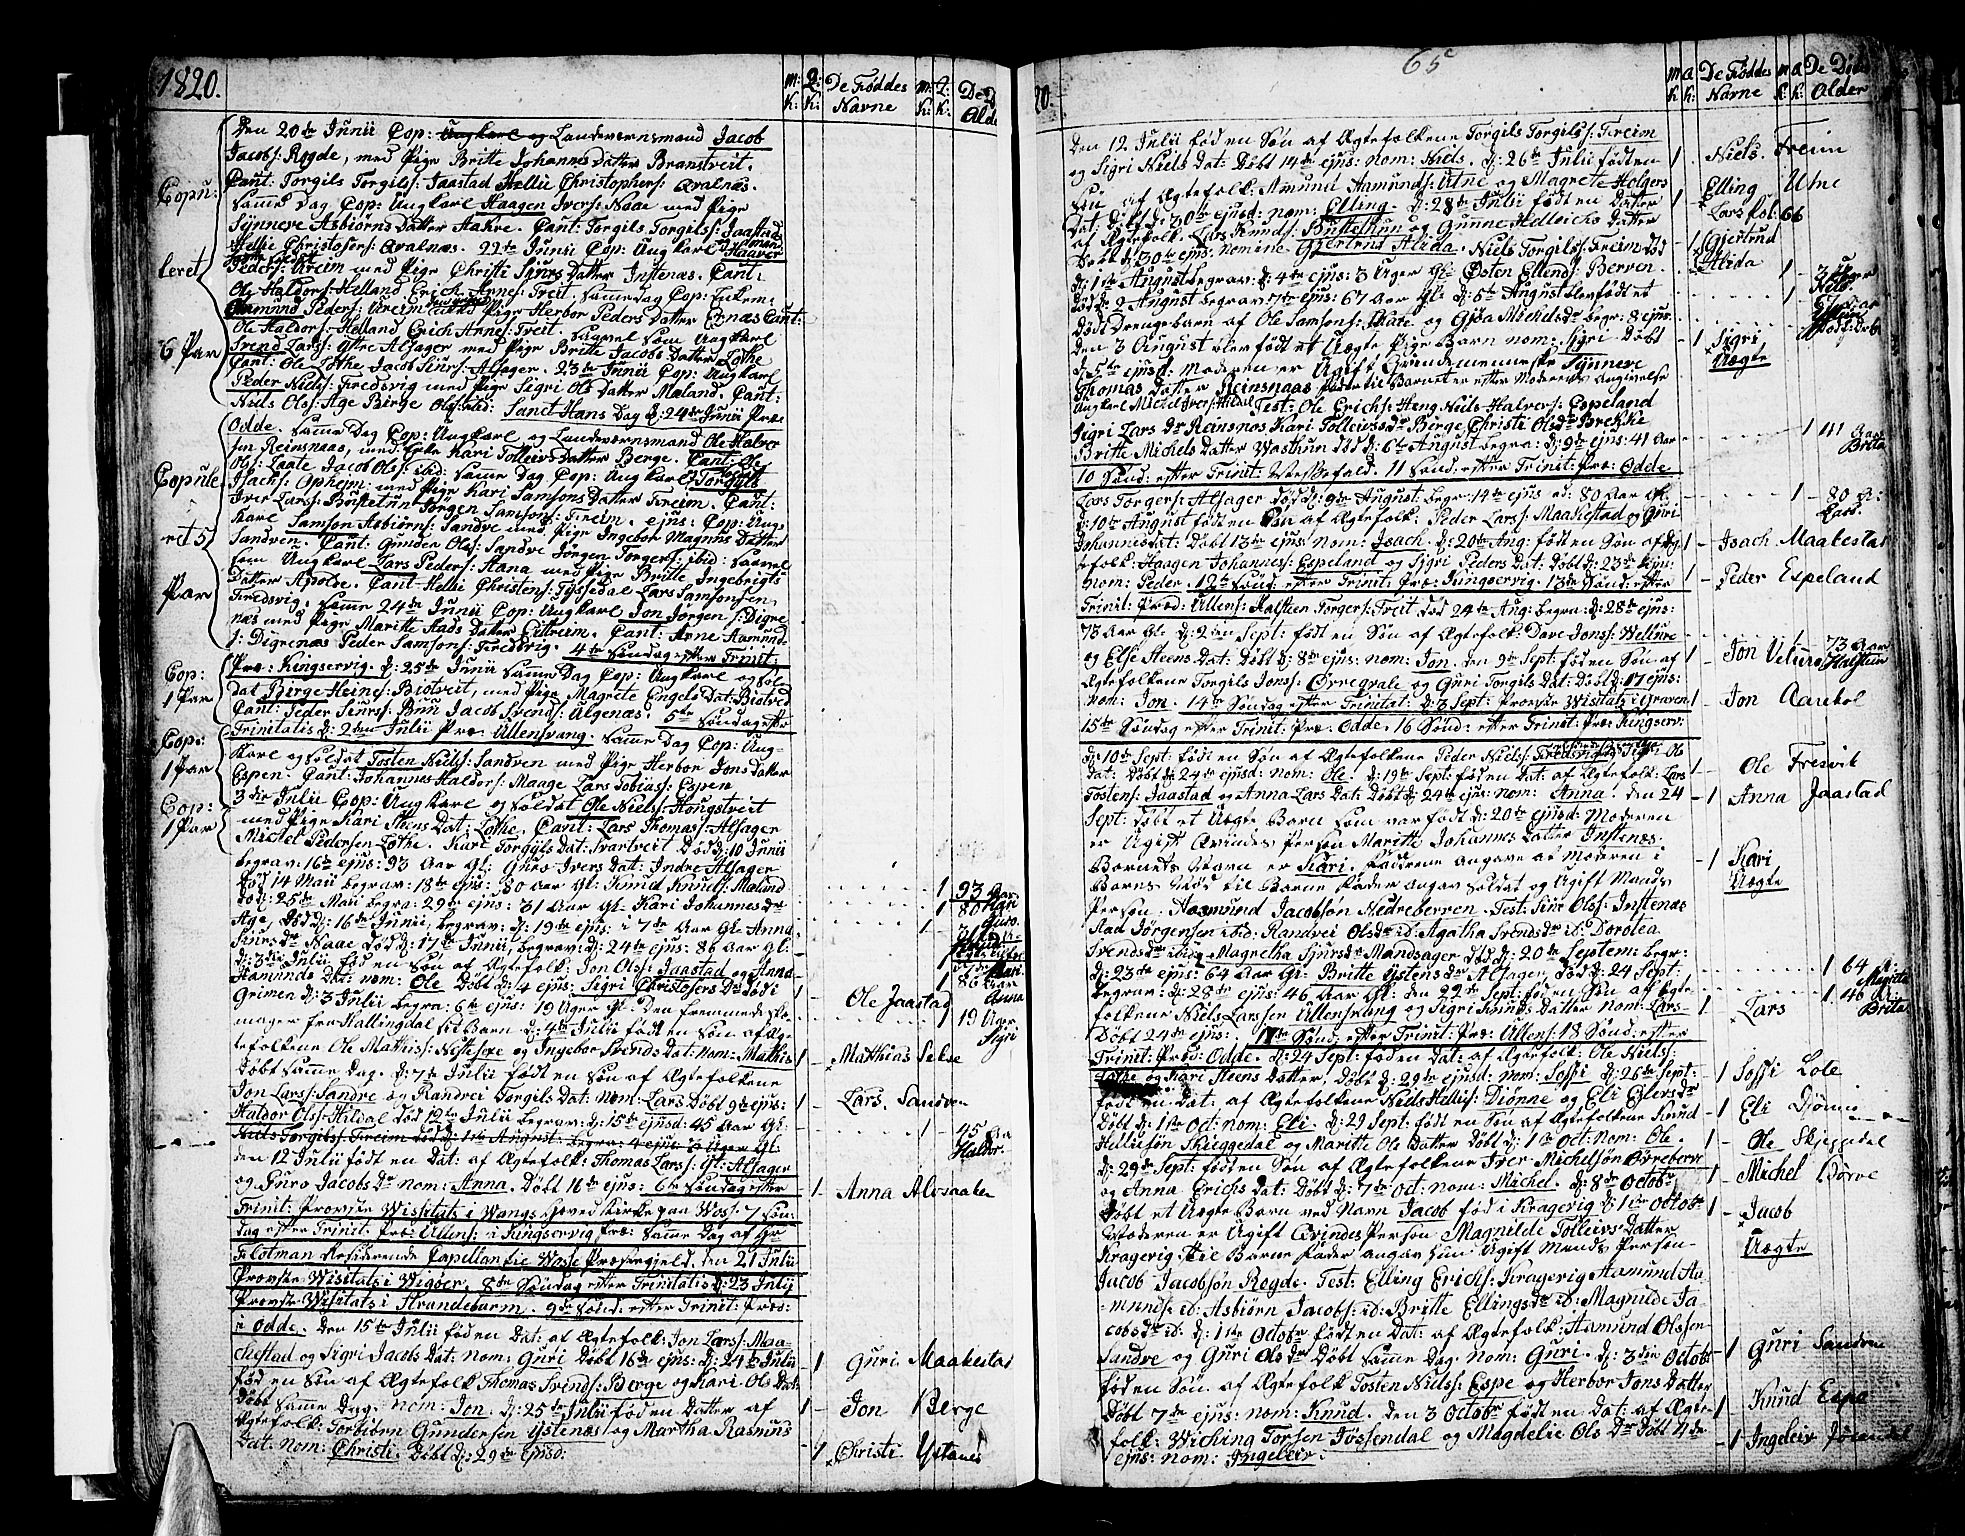 1820.
m: Q: De Føddes m: Q: De D
k: k: Navne k: k: Alde
Den 20de Junii Cop: Ungkarl og Landeværnsmand Jacob
Jacobs: Rogde, med Pige Britte Johannes Datter Branstveit.
Cant: Torgils Torgils: Jaastad Hellie Christophers: Qvalnæs.
Samme Dag Cop: Ungkarl Haagen Ivers: Naae med Pige
Synneve Asbiørns Datter Aakre. Cant: Torgils Torgils: Jaastad
Hellie Christofers: Qvalnæs. 22de Junii Cop: Ungkarl Haaver
Peders: Ureim med Pige Christi Siurs Datter Instenæs. Cant:
Ole Haldors: Helland Erich Arnes: Freit. Samme Dag Cop: Enkem:
Aamund Peders: Ureim med Pige Herbor Peders Datter Ernæs Cant:
Ole Haldors: Helland Erich Arnes: Freit. Saavel som Ungkarl
Svend Lars: Øfre Alsager med Pige Britte Jacobs Datter Lothe
Cant: Ole Lothe Jacob Siurs: Alsager. 23de Junii Cop: Ungkarl
Peder Niels: Fredsvig med Pige Sigri Ols Datter Mæland. Cant:
Niels Ols: Age Birge Ols: ibid: Sanct Hans Dag d: 24de Junii Præ:
Odde. Samme Dag Cop: Ungkarl og Landeværnsmand Ole Halvor
sen Reinsnaas, med Kari Tolleivs Datter Berge. Cant: Ole
Ols: Laate Jacob Ols: ibid: Samme Dag Cop: Ungkarl Torgils
Isachs: Opheim med Pige Kari Samsons Datter Freim. Cant:
Iver Lars: Busketun Jørgen Samsons: Freim. ejus: Cop: Ung
karl Samson Asbiørns: Sandve med Pige Ingebor Magnus Datter
Sandven. Cant: Gunder Ols: Sandve Jørgen Torgers: ibid: Saavel
som Ungkarl Lars Peders: Aana med Pige Britte Ingebrigts
Datter Apolde. Cant: Hellie Christens: Tyssedal Lars Samsonsen
Fredsvig. Samme 24de Junii Cop: Ungkarl Jon Jørgens: Digre
næs med Pige Maritte Aads Datter Eittreim. Cant: Arne Aamund
s: Digrenæs Peder Samsons: Fredsvig. 4de Søndag efter Trinit:
Præ: Kingservig. d: 25de Junii Samme Dag Cop: Ungkarl og Sol
dat Birge Heines: Biotveit, med Pige Magrete Engels Dat: Biotved
Cant: Peder Siurs: Buu Jacob Svends: Ulgenæs. 5te Søndag efter
Trinitatis d: 2den Julii Præ: Ullensvang. Samme Dag Cop: Ung-
karl og Soldat Tosten Niels: Sandven med Pige Herbor Jons Datter
Espen. Cant: Johannes Haldors: Maage Lars Tobias: Espen
3die Julii Cop: Ungkarl og Soldat Ole Niels: Aougstveit
med Pige Kari Stens Dat: Lothe. Cant: Lars Thomas: Alsager
Michel Pedersen Lothe. Kari Torgils Dat: Svartveit Død d: 10 Junii
begrav: 16de ejus: 93 Aar Gl: Guro Ivers Dat: Indre Alsager
død 14 Maii begrav: 18de ejus: 80 Aar Gl: Knud Knuds: Mælund
død: 25de Maii begra: 29de ejus: 31 Aar Gl. Kari Johannes dr
Age, død d: 16de Junii, begrav: d: 19de ejus: i 7de Aar Gl. Anna
Siurs dr Naae død d: 17de Junii, begrav: d: 24de ejus: 86 Aar Gl:
d: 3die Julii fød en Søn af Ægtefolk: Jon Ols: Jaastad og Anna
Aamunds Dat: nom: Ole Døbt d: 4 ejus: Sigri Christofers Dr Død i
Grimen d: 3 Julii begra: 6te ejus: 19 Uger Gl: Den fremmede sko
mager fra Hallingdal til Barn d: 4de Julii født en Søn af Æg-
tefolkene Ole Mathis: Nessesexe og Ingebor Svends Dat: nom: Mathis
Døbt samme Dag. d: 7de Julii født en Søn af Ægtefolkene
Jon Lars: Sandve og Randvei Torgils Dat: Nom: Lars Døbt 9de ejus:
Haldor Ols: Hildal død 12te Julii begrav: d: 15de ejusd: 45 Aar Gl:
Niels Torgils: Freim død d: 1ste August: begra: 4 ejus: 3 Uger Gl:
den 12 Julii født en Dat: af Ægtefolk: Thomas Lars: Gl: Alsager
og Guro Jacobs Dr nom: Anna. Døbt 16de ejus: 6te Søndag efter
Trinit: Provste Wissitats i Wangs Hoved Kirke paa Woss: 7 Søn
dag efter Trinit: Præ: Ullens: i Kingservig Præ: Samme Dag af Hr
F: Colman Residerende Capellan fra Wosse Præstegjeld. den 21 Julii
Provste Wisitats i Wigøer. 8de Søndag efter Trinitatis d: 23 Julii
Provste Wisitats i Strandebarm. 9de Sønd: efter Trinit: Præ:
i Odde. Den 15de Julii fød en Dat: af Ægtefolk: Jon Lars: Maa-
chestad og Sigri Jacobs Dat: nom: Guri Døbt 16de ejus: d: 24de Julii
fød en Søn af Ægtefolk Thomas Svends: Berge og Kari Ols Dat:
Døbt samme Dag. nom: Jon. d: 25de Julii fød en Datter af
Ægtefolk: Torbiørn Gundersen Ystenæs og Martha Rasmus
Dat: nom: Christi. Døbt d: 29de ejusd:
Copu:
leret
6 Par
Copule
ret 5
Par
Cop:
1 Par
Cop:
1 Par
Cop:
1 Par
1 93 Aar
Kari
1 80
Guro
1
1 86 Aar
Anna
1 - Ole Jaastad
1 19 Uger
Sigri
1 - Matthias Sexe
1 - Lars. Sandven
1 - 45 Aar
Haldor
1 - Anna Alvsaaker
1 - Guri Maakestad
1 - Jon Berge
1 - Christi Ystanes
20.
65
m Q De Føddes m Q De Døde
k k: Navne k: k: Alder
Den 12 Julii fød en Søn af Ægtefolkene Torgils Torgils: Freim
og Sigri Niels Dat: Døbt 14de ejus: nom: Niels. d: 26de Julii fød en
Søn af Ægtefolk: Amund Aamunds: Utne og Magrete Holgers
Dat: Døbt d: 30te ejusd: nom: Elling. d: 28de Julii fød en Datter
af Ægtefolk. Lars Knuds: Buskethun og Gunne Helleichs Datter
Døbt d: 30te ejus: nomine Gjertrud Alida. Niels Torgils: Freim død
d: 1ste August begrav: d: 4de ejus: 3 Uger Gl: Østen Ellends: Berven
død d: 2 August begrav: 7de ejus: 67 Aar Gl: d: 5te August blev født et
Dødt Drengebarn af Ole Samsons: Skare og Gjøa Michels dr begr: 8 ejus:
Den 3 August blev født et Uægte Pige Barn nom: Sigri Døbt
d: 5te ejusd: Moderen er Ugift Qvindemenneske Synneve
Thomas Datter Reinsnaas Fader til Barnet er efter Moderens Angivelse
Ungkarl Michel Ivers: Hildal Test: Ole Erichs: Heng Niels Halvers: Espeland
Sigri Lars Dr Reinsnos Kari Tolleivs dr Birge Christi Ols dr Brekke
Britte Michels Datter Wasthun død d: 6te August begra: d: 9de ejus: 41 Aar
10 Sønd: efter Trinit: Messefald. 11 Sønd: efter Trinit: Præ: Odde
Lars Torgers: Alsager død d: 9de August: begr: 14de ejus ed: 80 Aar Gl:
d: 10de August fød en Søn af Ægtefolk: Peder Lars: Maakestad og Guri
Johannesdat: Døbt 13de ejus: nom: Isach. d: 20de Aug: fød en Søn af Æg-
tefolk: Haagen Johannes: Espeland og Sigri Peders Dat: Døbt d: 23de ejus:
nom: Peder. 12te Sønd: efter Trinit: Præ: Kingservig. 13de Sønd: efter
Trinit: Præd: Ullens: Halsten Torgers: Freit død 24de Aug: begra: d: 28de ejus:
73 Aar Gl: d: 2den Sept: født en Søn af Ægtefolk: Dave Jons: Wellure
og Else Steens Dat: Døbt d: 8de ejus: nom: Jon. den 9de Sept: fød en Søn af
Ægtefolkene Torgils Jons: Ørregvale og Guri Torgils Dat: Døbt d: 17 ejus:
nom: Jon. 14de Søndag efter Trinitat: d: 3 Sept: Provste Wisitats i Graven
15de Søndag efter Trinit: Præ: Odde. 16 Sønd: efter Trinit: Præ: Kingserv:
d: 10de Sept: fød en Søn af Ægtefolkene Peder Niels: Fredsvig og Sigri Ols
Dat: Døbt d: 24de ejusd: nom: Ole. d: 19de Sept: fød en Dat: af Ægtefolk: Lars
Tostens: Jaastad og Anna Lars Dat: Døbt d: 24de ejus: nom: Anna. den 24
Sept: døbt et Uægte Barn som var født d: 20de ejusd: Moderen
er Ugift Qvindes Person Maritte Johannes Datter Instenæs.
Barnets Navn er Kari. Faderen angave af Moderen i
Barns Nød til Barne Fader angav Soldat og Ugift Mands
Person. Aasmund Jacobsøn Nedreberven. Test: Siur Ols: Instenæs
Aad Jørgensen ibid: Randvei Ols dr id: Agatha Svends dr id: Dorotea
Svends dr ibid: Magretha Sjurs dr Mandsager død d: 20de Septem: begr:
d: 23de ejus: 64 Aar Gl: Britte Ystens dr Alsager, død d: 24 Sept:
begrav: d: 28de ejus: 46 Aar Gl: den 22de Sept: fød en Søn af Ægte-
folkene Niels Larssen Ullensvang og Sigri Knuds Datter nom: Lars-
Døbt 24de ejus: 17de Sønd: efter Trinit: Præ: Ullens: 18 Sønd: efter
Trinit: Præd: Odde. d: 24 Sept: fød en Dat: af Ægtefolk: Ole Niels:
Lothe og Kari Steens Datter. Døbt d: 29de ejusd: nom: Sossi d: 26de Sept:
født en Dat: af Ægtefolkene Niels Hellies: Diønne og Eli Eglers dr
Døbt d: 1ste Oct: nom: Eli. d: 29 Sept: født en Søn af Ægtefolkene Knud
Helliesøn Skieggedal og Maritte Ols Datter Døbt d: 1ste Oct: Nom: Ole.
d: 29de Sept: fød en Søn af Ægtefolkene Iver Michelsøn Ørreberve
og Anna Erichs Dat: Døbt d: 7de Oct: nom: Michel. d: 8de Octobr
Døbt et Uægte Barn ved Navn Jacob fød i Kragevig d: 1ste Octobr
Moderen er Ugift Qvindes Person Magnilde Tolleivs Datter
Kragevig, til Barne Fader angav hun: Ugift Mands Person-
Jacob Jacobsøn Rogde. Test: Elling Erichs: Kragevig Aamund Aa-
munds: id: Asbiørn Jacobs: id: Britte Ellings dr id: Magnilde Ja-
cobs dr id: d: 1ste Octobr født en Dat: af Ægtefolk: Aamund Olssen
Sandve og Guri Ols dr Døbt samme Dag. nom: Guri. d: 3die Octob:
fød en Søn: af Ægtefolk Tosten Niels: Espe og Herbor Jons Datter
Døbt 7de ejus: nom: Knud. den 3 Octobr født en Dat: af Ægte-
folk: Wiching Torsen Jøssendal og Magdelie Ols Dr Døbt 4de
ejus: nom: Ingeleiv.
1 - Niels. Freim
1 Elling Utne
Lars fol: 66
1 Gjertrud
Alida
1 - 3 Uger
Niels
1 Sigri
Uægte
1 41 Aar
Brita
1 - 80 A:
Lars.
1 - Isach Maakestad
1 - Peder Espeland
1 73 Aar
Halstein
1 - Jon Velure
1 - Jon Aarekol
1 - Ole Fresvik
1 - Anna Jaastad
1 Kari
Uægte
1 64 A:
Magrete
1 46 A:
Brita
1 - Lars
1 Sossi Lote
1 Eli Djønne
1 - Ole Skjeggedal
1 - Michel Børve
1 - Jacob
Uægte
1 Guri Sandven
1 - Knud Espe
1 Ingeleiv Jøsendal